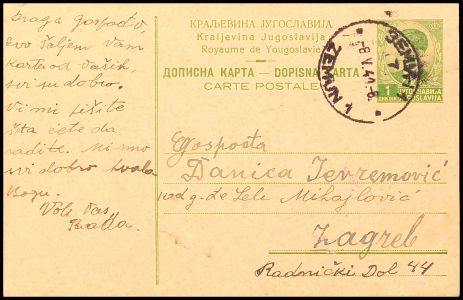 Draga gospođo,
evo šaljem Vam
karte od Vaših,
svi su dobro.
Vi mi pišite
šta ćete da
radite. Mi smo
svi dobro hvala
Bogu.
Voli Vas
КРАЉЕВИНА ЈУГОСЛАВИЈА
Kraljevina Jugoslavija
Royaume de Yougoslavie
ДОПИСНА КАРТА — DOPISNA KARTA
CARTE POSTALE
ЗЕМУН
ZEMUN
1
ЈУГОСЛАВИЈА
JUGOSLAVIJA
Gospođa
Danica Jevremović
kod g-đe Lele Mihajlović
Zagreb
Radnički Dol 44